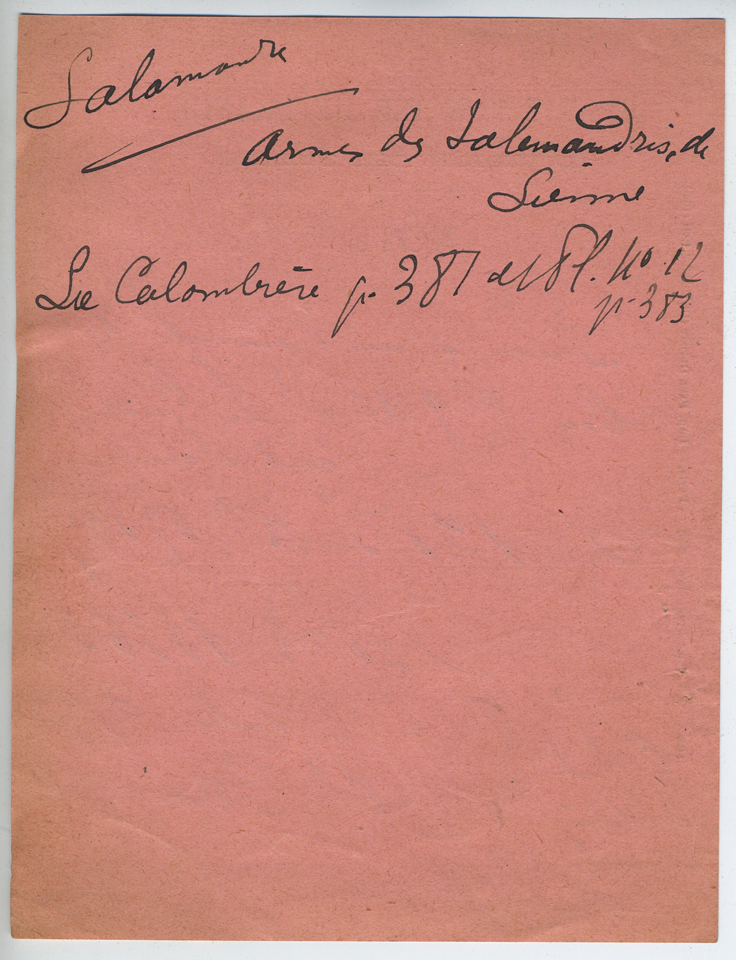 Salamandre
Armes des Salamandris, de
Sienne
La Colombière p. 387 et Pl. No 12
p. 383